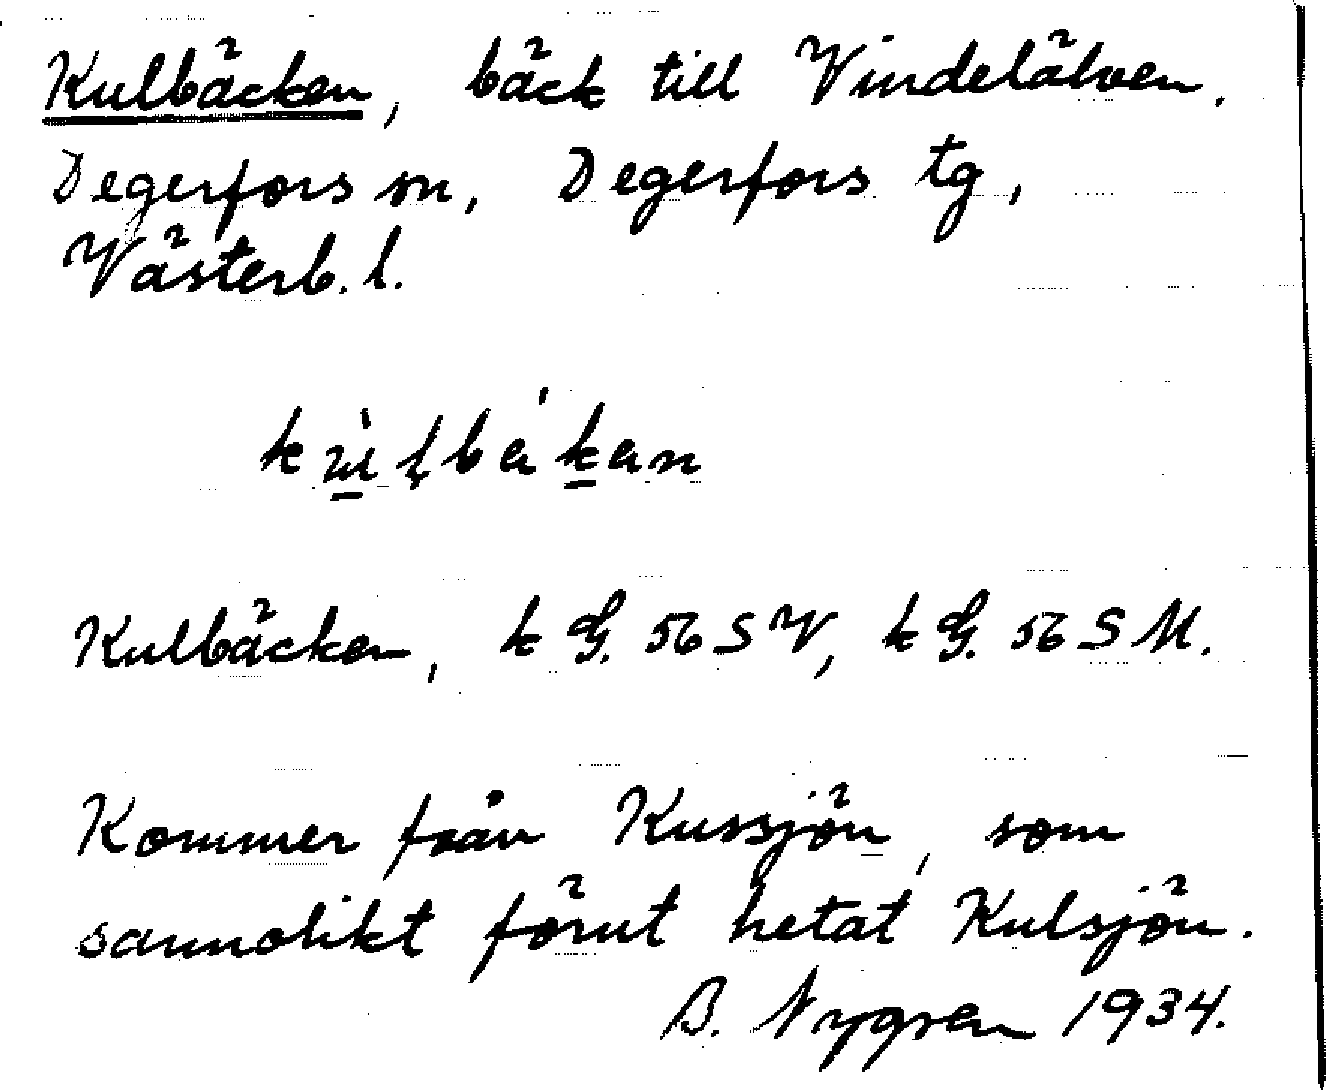 Kulbäcken, bäck till Vindelälven.
Degerfors sn, Degerfors tg,
Västerb. l.
Kulbäcken, k G. 56 SV, k G. 56 S M.
Kommer från Kussjön, som
sannolikt förut hetat Kulsjön.
B. Nygren 1934.